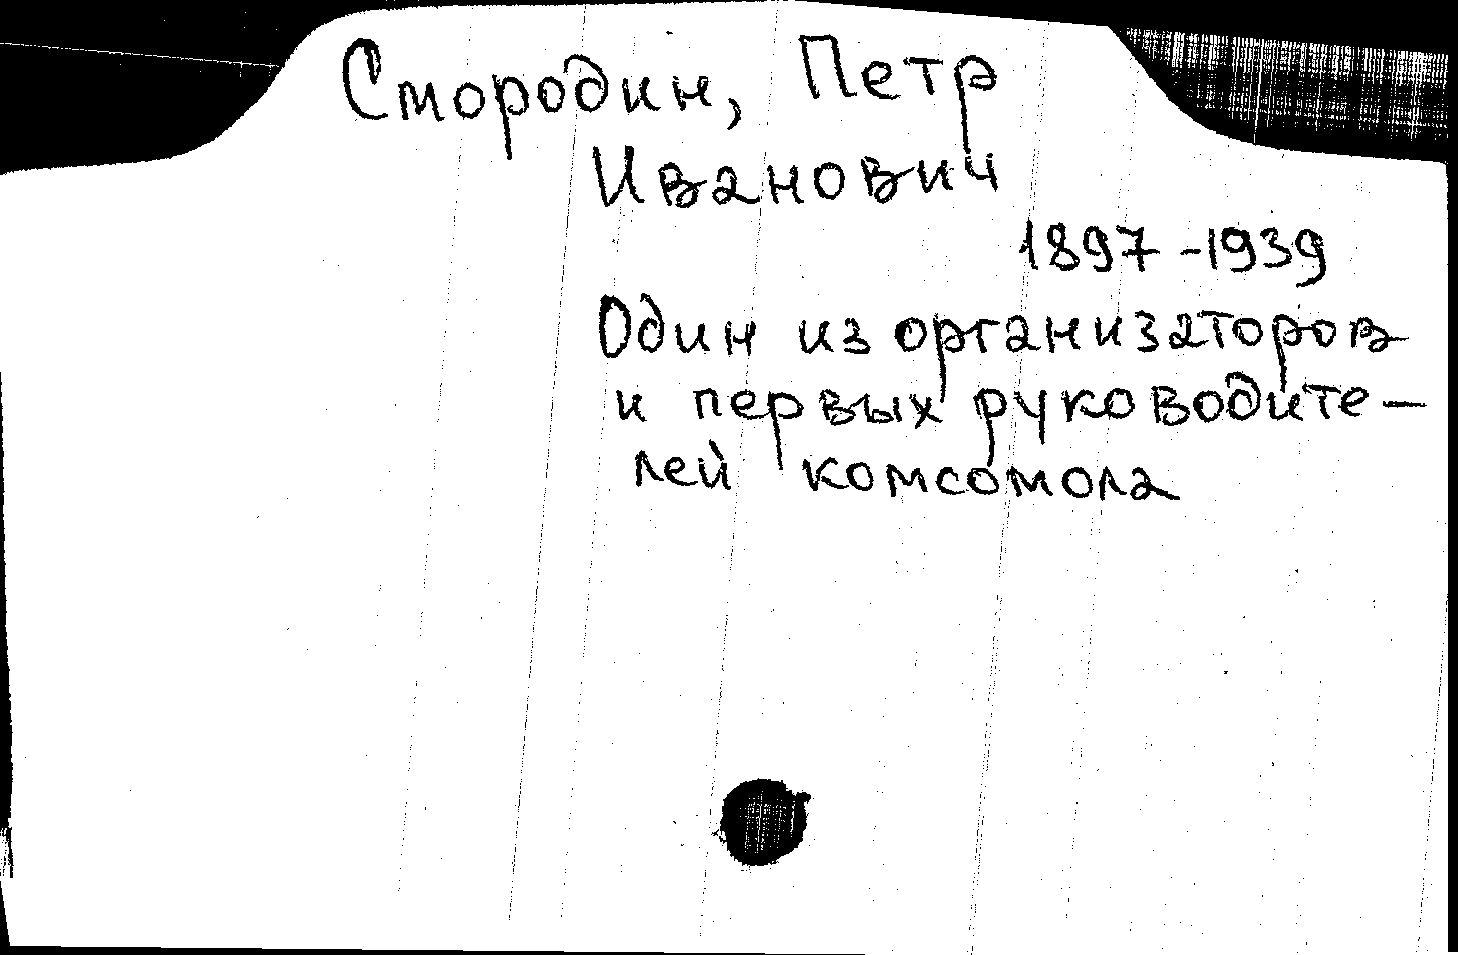 Смородин, Петр
Иванович
1897-1939
Один из организаторов
и первых руководите-
лей комсомола